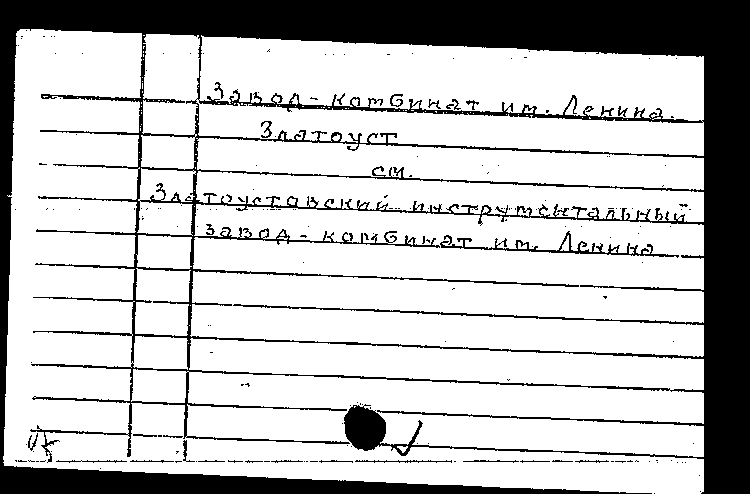 Завод-комбинат им. Ленина.
Златоуст
см.
Златоустовский инструментальный
завод-комбинат им. Ленина